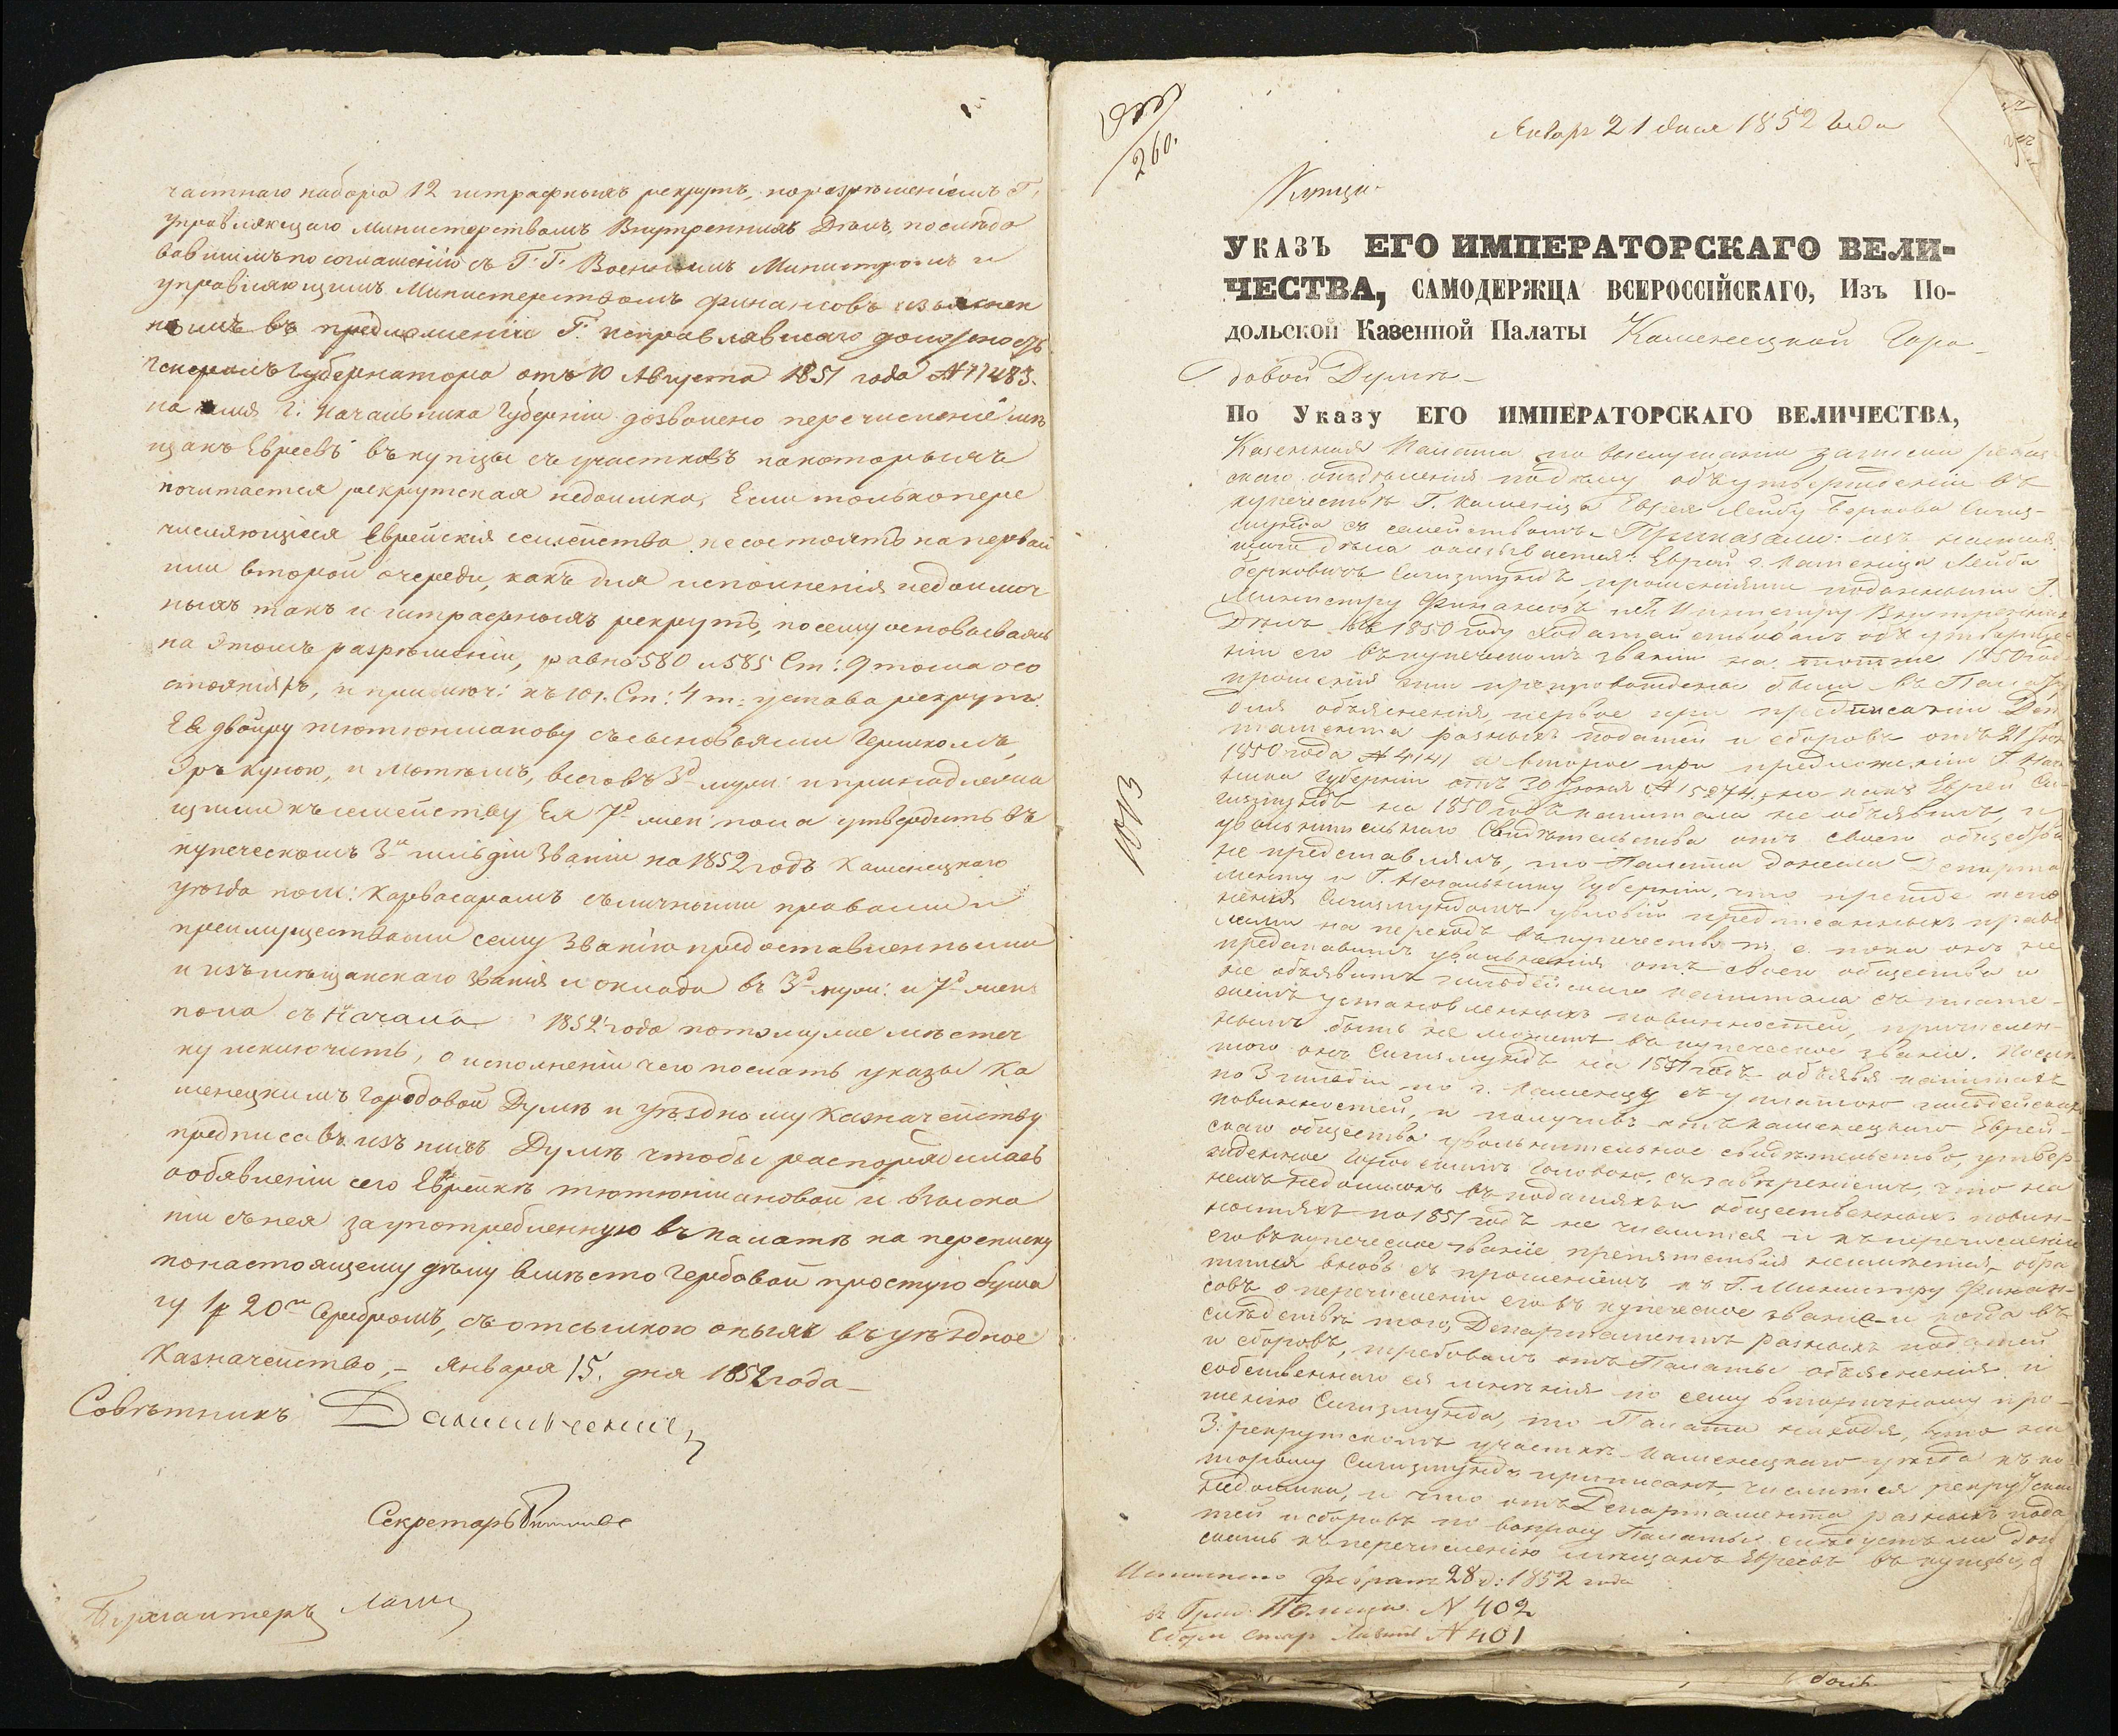 частнаго набора 12 штрафныхъ рекрутъ, поразрѣшеніемъ Г.
Управляющаго Министерствомъ Внутреннихъ Дѣлъ, послѣдо
вавшимъ по соглашенію съ Г. Г. Военнымъ Министромъ и
управляющимъ Министерствомъ финансовъ изъяснен
нымъ въ предложеніи Г. исправлявшаго должность
Генералъ Губернатора отъ 10 Августа 1851 года № 11483.
на имя Г. Начальника Губерніи дозволено перечисленіе мѣ
щанъ Евреевъ въ купцы съ участковъ на которыхъ
почитается рекрутская недоимка, Если только пере
числяющіеся Еврейскія семейства несостоятъ на первой
или второй очереди, какъ для исполненія недоимоч
ныхъ такъ и штрафныхъ рекрутъ, посему основываясь
на этомъ разрѣшеніи, равно 580 и 585 Ст: 9 тома о со
стояніяхъ, и примѣч: къ 101. Ст: 4 т: устава рекрут:
Ев двойру тютюнманову съ сыновьями Гершкомъ,
и Мотемъ, всего въ 3^д муж: и принадлежа
щими къ семейству Ея 7^д жен: пола утвердить въ
купеческомъ 3^й гильдіи званіи на 1852 годъ Каменецкаго
уѣзда пом: Карвасарамъ съ личными правами и
преимуществами сему званію предоставленными
и изъ мѣщанскаго званія и оклада въ 3^д муж: и 7^д жен:
пола съ Начала 1852 года потомуже мѣстеч
ку исключить, о исполненіи чего послать указы Ка
менецкимъ Городовой Думѣ и уѣздному Казначейству
предписавъ изъ нихъ Думѣ чтобы распорядилась
о обявленіи сего Еврейкѣ тютюнмановой и взыска
ніи съ нея за употребленную въ Палатѣ на переписку
по настоящему дѣлу вмѣсто Гербовой простую бума
гу 1р 20^к Серебромъ, съ отсылкою оныхъ въ уѣздное
Казначейство, – Января 15. дня 1852 года –
Совѣтникъ
Секретарь
Бухгалтеръ
260.
Январь 21 дня 1852 года
Купца
УКАЗЪ ЕГО ИМПЕРАТОРСКАГО ВЕЛИ-
ЧЕСТВА, САМОДЕРЖЦА ВСЕРОССІЙСКАГО, Изъ По-
дольской Казенной Палаты Каменецкой Горо-
довой Думѣ –
По Указу ЕГО ИМПЕРАТОРСКАГО ВЕЛИЧЕСТВА,
Казенная Палата по выслушаніи записки ревиз
скаго отдѣленія по дѣлу объ утвержденіи въ
купечествѣ Г. Каменца Еврея Лейбу Беркова Сигиз-
мунда съ семействомъ. Приказали: изъ настоя
щаго дѣла оказывается: Еврей г. Каменца Лейба
Берковичъ Сигизмундъ, прошеніями поданными Г.
Министру Финансовъ и Г. Министру Внутреннихъ
Дѣлъ въ 1850 году ходатайствовалъ объ утвержде
ніи его въ купеческомъ званіи на тотже 1850 годъ
прошенія эти препровождены были въ Палату
для объясненія, первое при предписаніи Депар
тамента разныхъ податей и сборовъ отъ 21 Іюня
1850 года № 4141 а второе при предложеніи Г. Нача
льника Губерніи отъ 30 Іюня № 15274, но какъ Еврей Си
гизмундъ на 1850 годъ капитала не объявилъ, и
увольнительнаго Свидѣтельства отъ своего общества
не представилъ, то Палата донесла Департа
менту и Г. Начальнику Губерніи, что прежде испол
ненія Сигизмундомъ условій предписанныхъ прави
лами на переходъ въ купечество т. е. пока онъ не
представитъ увольненія отъ своего общества и
не объявитъ гильдейскаго капитала съ плате-
жемъ установленныхъ повинностей, причислен-
нымъ быть не можетъ въ купеческое званіе. Послѣ
того онъ Сигизмундъ на 1851 годъ объявя капиталъ
по 3 гильдіи по г. Каменцу съ уплатою гильдейскихъ
повинностей, и получивъ отъ Каменецкаго Еврей-
скаго общества увольнительное свидѣтельство, утвер
жденное Городскимъ Головою, съ завѣреніемъ, что на
немъ недоимокъ въ податяхъ и общественныхъ повин-
ностяхъ по 1851 годъ не числится и къ перечисленію
его въ купеческое званіе препятствія неимѣется, обра
тился вновь съ прошеніемъ къ Г. Министру Финан-
совъ о перечисленіи его въ купеческое званіе и когда въ
слѣдствіе того, Департаментъ разныхъ податей
и сборовъ, требовалъ отъ Палаты объясненія и
собственнаго ея мнѣнія по сему вторичному про-
шенію Сигизмунда, то Палата находя, что на
3. рекрутскомъ участкѣ Каменецкаго уѣзда къ ко-
торому Сигизмундъ приписанъ, числится рекрутская
недоимка, и что отъ Департамента разныхъ пода
тей и сборовъ по вопросу Палаты слѣдуетъ ли доп
скать къ перечисленію мѣщанъ Евреевъ въ купцы, о
1013
Исполнено Февраля 28 д: 1852 года
№ 402
№ 401